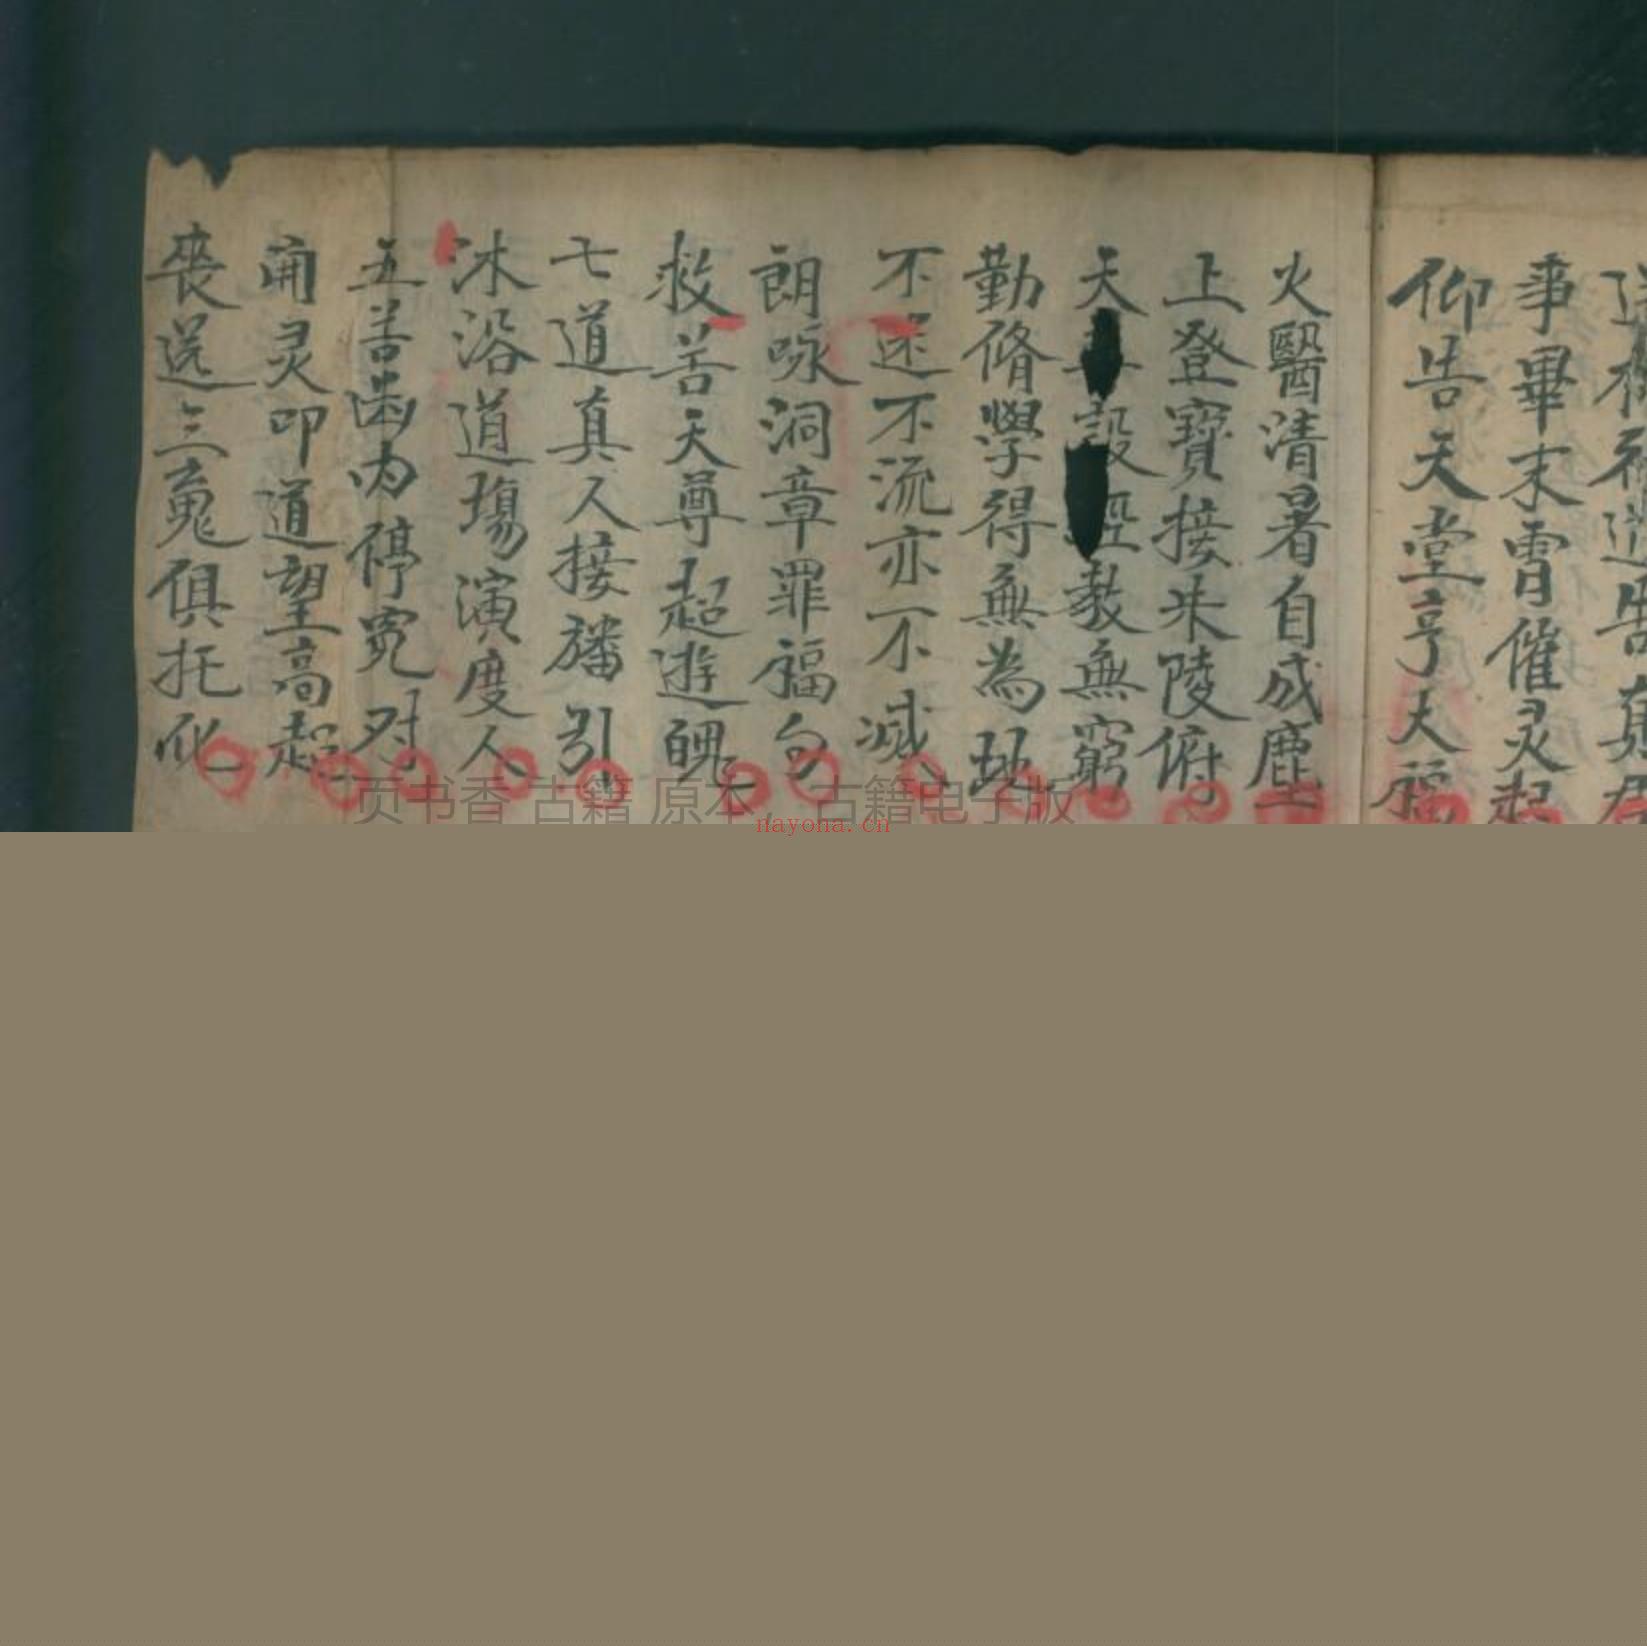 事畢末霄催灵起
仰告天堂亨大福
火醫清暑自成塵
上登寶接朱陵府
天 設經教無窮
勤脩學得無為
不迷不流亦不滅
朗咏洞章罪福勾
救苦天尊起遊魄
七道真人接旛引
沐浴道塲演度人
五苦凾内停寃对
開灵叩道望高超
喪送三䰟俱托化
页书香 古籍 原本 古籍电子版
nayona.cn